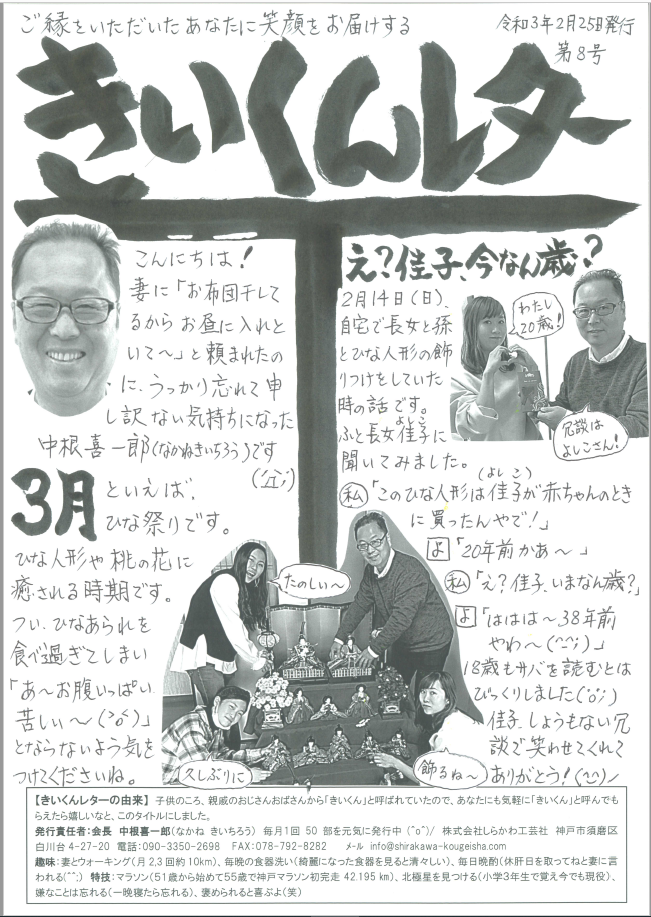 ご縁をいただいたあなたに笑顔をお届けする
令和3年2月25日発行
第8号
きいくんレター
こんにちは！
妻に「お布団干して
るからお昼に入れと
いて〜」と頼まれたの
に、うっかり忘れて申
し訳ない気持ちになった
中根喜一郎(なかねきいちろう)です
(^_^;)
3月
といえば、
ひな祭りです。
ひな人形や桃の花に
癒される時期です。
つい、ひなあられを
食べ過ぎてしまい
「あ〜お腹いっぱい
苦しい〜(>o<)」
とならないよう気を
つけてくださいね。
え？佳子、今なん歳？
2月14日(日)、
自宅で長女と孫
とひな人形の飾
りつけをしていた
時の話です。
ふと長女佳子に
よしこ
聞いてみました。
わたし
20歳！
冗談は
よしこさん！
(よしこ)
私「このひな人形は佳子が赤ちゃんのとき
に買ったんやで！」
よ「20年前かあ〜」
私「え？佳子、いまなん歳？」
よ「ははは〜38年前
やわ〜(^-^;)」
18歳もサバを読むとは
びっくりしました('o';)
佳子、しょうもない冗
談で笑わせてくれて
ありがとう！(^-^)ノ
たのしい〜
久しぶりに
飾るね〜
【きいくんレターの由来】 子供のころ、親戚のおじさんおばさんから「きいくん」と呼ばれていたので、あなたにも気軽に「きいくん」と呼んでも
らえたら嬉しいなと、このタイトルにしました。
発行責任者:会長 中根喜一郎(なかね きいちろう) 毎月1回 50 部を元気に発行中 (^o^)/ 株式会社しらかわ工芸社 神戸市須磨区
白川台 4-27-20 電話:090-3350-2698 FAX:078-792-8282 メール info@shirakawa-kougeisha.com
趣味:妻とウォーキング(月2,3回約10km)、毎晩の食器洗い(綺麗になった食器を見ると清々しい)、毎日晩酌(休肝日を取ってねと妻に言
われる(^^;) 特技:マラソン(51歳から始めて55歳で神戸マラソン初完走 42.195 km)、北極星を見つける(小学3年生で覚え今でも現役)、
嫌なことは忘れる(一晩寝たら忘れる)、褒められると喜ぶよ(笑)